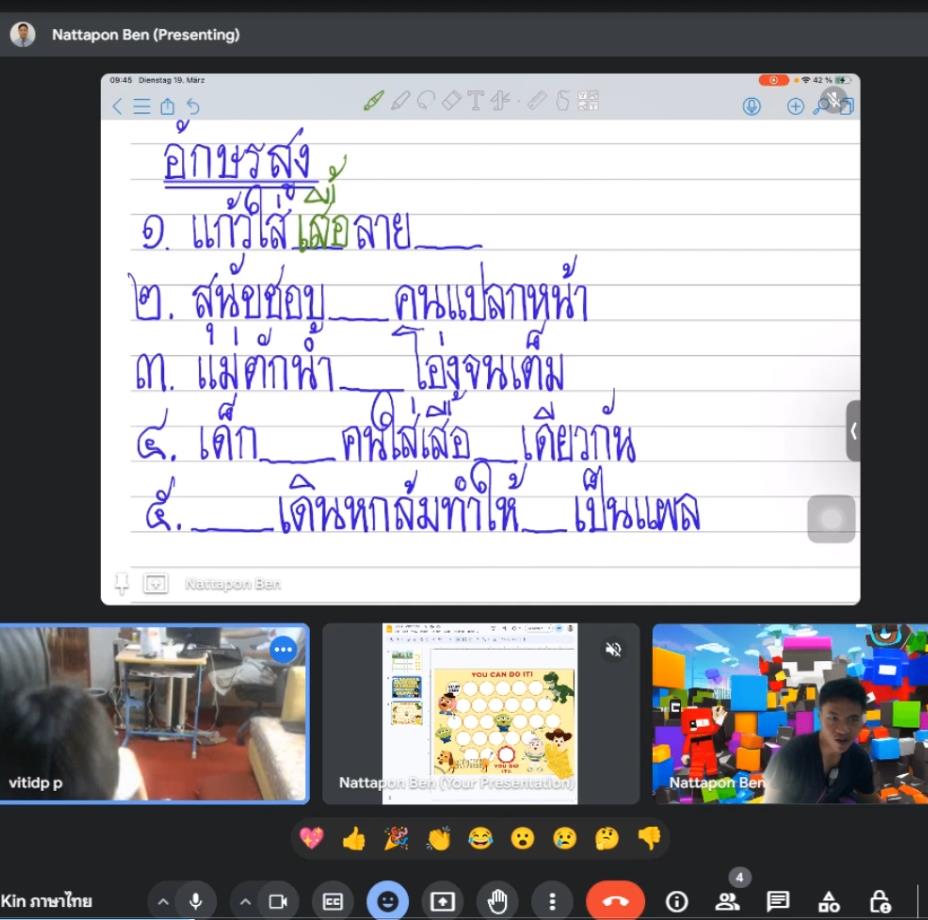 Nattapon Ben (Presenting)
09:45 Dienstag 19. März
42 %
อักษรสูง
๑. แก้วใส่เสื้อลาย____
๒. สุนัขชอบขู่____คนแปลกหน้า
๓. แม่ตักน้ำ____โอ่งจนเต็ม
๔. เด็ก____คนใส่เสื้อ___เดียวกัน
๕. ____เดินหกล้มทำให้___เป็นแผล
Nattapon Ben
vitidp p
YOU CAN DO IT!
YOU DID IT!
Nattapon Ben (Your Presentation)
Nattapon Ben
4
Kin ภาษาไทย
CC